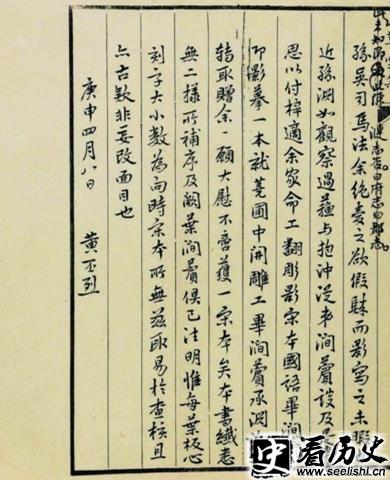 孫吳司馬法余絶愛之欲假歸而影寫之未暇
近孫淵如觀察過蘇与抱沖從弟澗薲談及是
思以付梓適余家命工翻彫影宋本國語畢澗
卽影摹一本就蕘圃中開雕工畢澗薲承淵
轉取贈余一願大慰不啻獲一宋本矣本書纖悉
無二樣所補序及闕葉澗薲俱已注明惟每葉板心
刻字大小數為向時宋本所無茲取易於查核且
亦古欵非妄改面目也
庚申四月八日 黃丕烈
史看历史
www.seelishi.cn